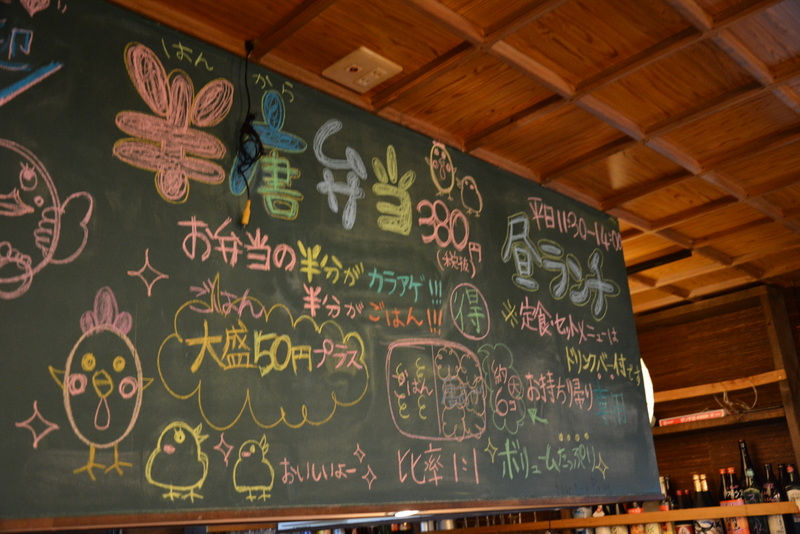 はん から
半唐弁当
380円
(税抜)
お弁当の半分が カラアゲ!!!
半分が ごはん!!!
得
ごはん
大盛50円プラス
ごはん
約6コ
大
おいしいよー
比率1:1
平日11:30~14:00
昼ランチ
※定食・セットメニューは
ドリンクバー付です
お持ち帰り
ボリュームたっぷり